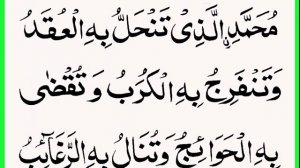 مُحَمَّدِ ۨالَّذِیْ تَنْحَلُّ بِهِ الْعُقَدُ
وَتَنْفَرِجُ بِهِ الْكُرَبُ وَتُقْضٰى
بِهِ الْحَوَائِجُ وَتُنَالُ بِهِ الرَّغَائِبُ